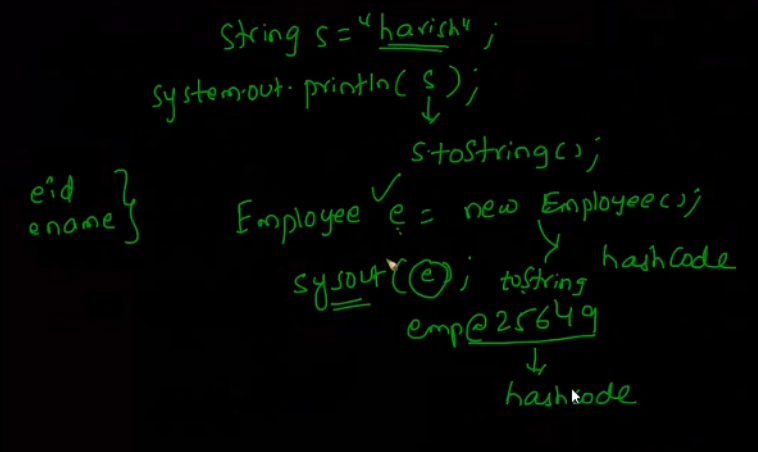 String s = "harish" ;
system.out.println( s );
s.toString();
eid
ename
Employee e = new Employee();
sysout( e ); toString hashCode
emp@25649
hashcode